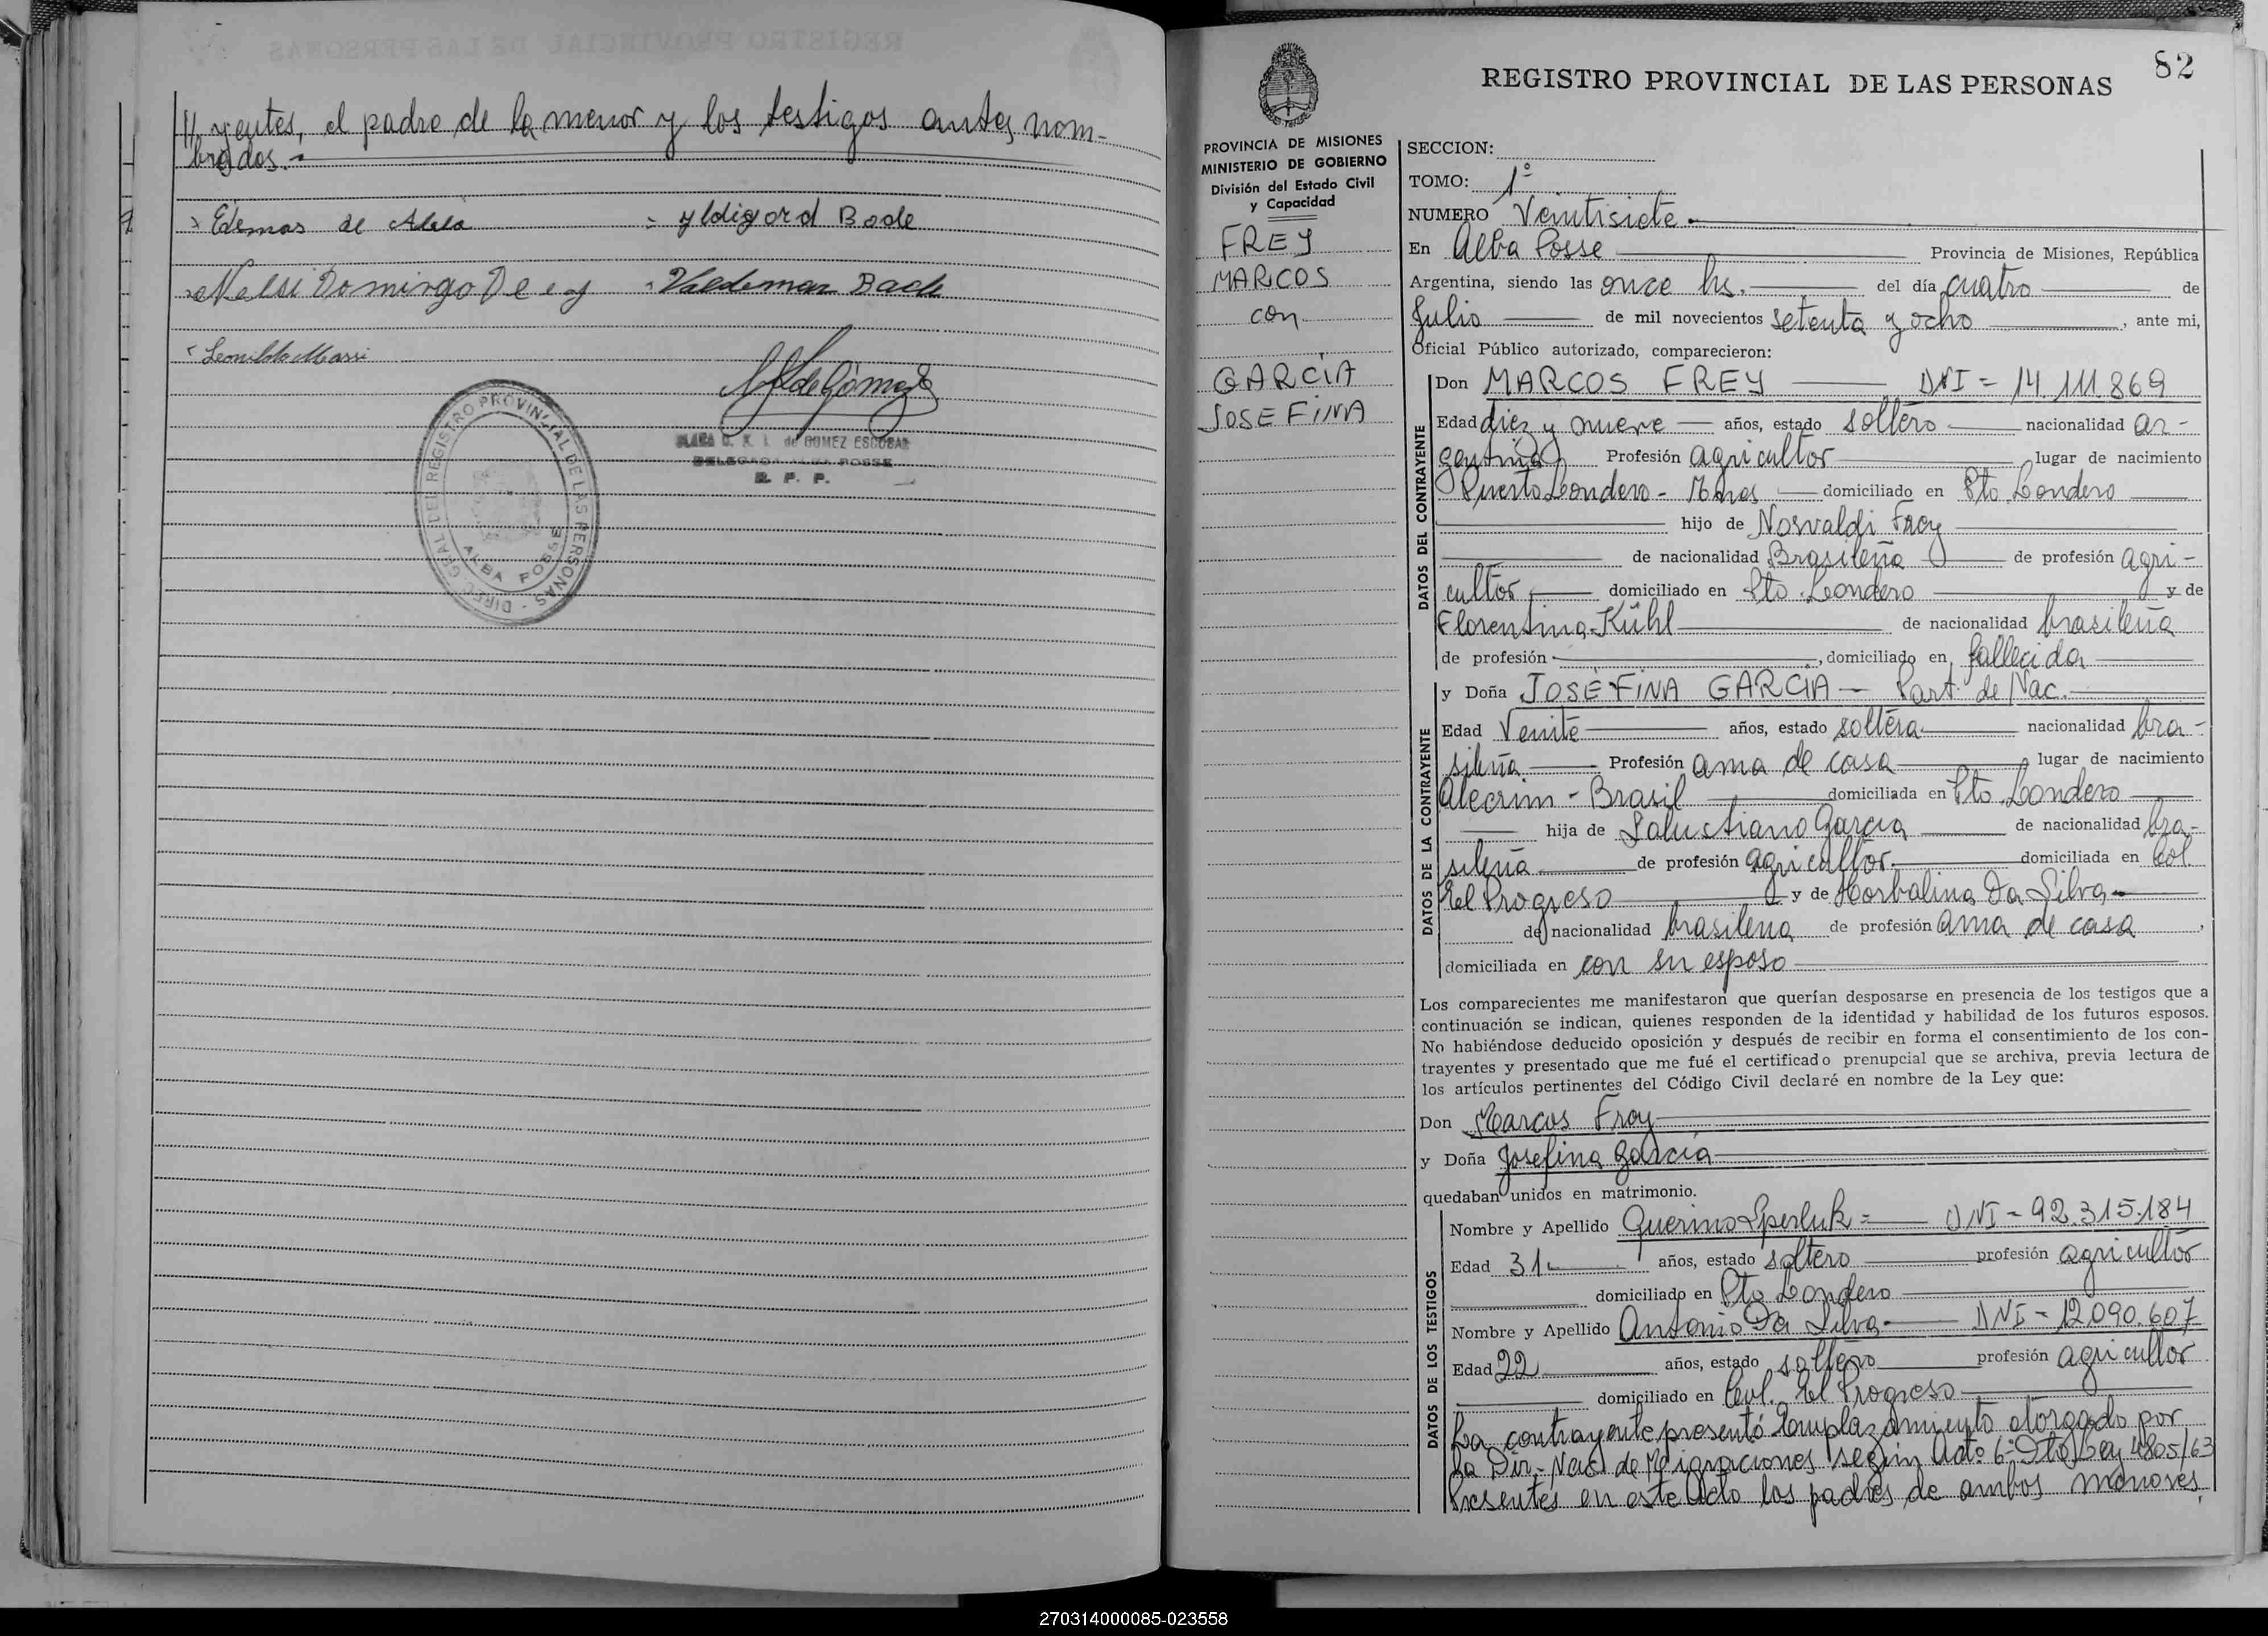 //yentes, el padre de la menor y los testigos antes nom-
brados.-
Edemas de
= yldigord Bode
Nelsi Domingo
Valdemar Bade
Leonildo Massi
DIREC. GRAL. DEL REGISTRO PROVINCIAL DE LAS PERSONAS -
ALBA POSSE
de GOMEZ ESCOBAR
DELEGADA ALBA POSSE
R. P. P.
82
REGISTRO PROVINCIAL DE LAS PERSONAS
PROVINCIA DE MISIONES
MINISTERIO DE GOBIERNO
División del Estado Civil
y Capacidad
FREY
MARCOS
con
GARCÍA
JOSEFINA
SECCION:
TOMO: 1º
NUMERO Veintisiete.
En Alba Posse Provincia de Misiones, República
Argentina, siendo las once hs. del día cuatro de
Julio de mil novecientos setenta y ocho, ante mi,
Oficial Público autorizado, comparecieron:
DATOS DEL CONTRAYENTE
Don MARCOS FREY DNI = 14.111.869
Edad diez y nueve años, estado soltero nacionalidad ar-
gentino Profesión agricultor lugar de nacimiento
Puerto Londero - Mnes domiciliado en Pto Londero
hijo de Nosvaldi Frey
de nacionalidad Brasileña de profesión agri-
cultor domiciliado en Pto. Londero y de
Florentina Kühl de nacionalidad brasileña
de profesión, domiciliado en fallecida
DATOS DE LA CONTRAYENTE
y Doña JOSEFINA GARCÍA - Part. de Nac.
Edad Veinte años, estado soltera nacionalidad bra-
sileña Profesión ama de casa lugar de nacimiento
Alecrim - Brasil domiciliada en Pto. Londero
hija de Salustiano García de nacionalidad bra-
sileña de profesión agricultor domiciliada en Col.
El Progreso y de Horbalina Da Silva
de nacionalidad brasilena de profesión ama de casa,
domiciliada en con su esposo
Los comparecientes me manifestaron que querían desposarse en presencia de los testigos que a
continuación se indican, quienes responden de la identidad y habilidad de los futuros esposos.
No habiéndose deducido oposición y después de recibir en forma el consentimiento de los con-
trayentes y presentado que me fué el certificado prenupcial que se archiva, previa lectura de
los artículos pertinentes del Código Civil declaré en nombre de la Ley que:
Don Marcos Frey
y Doña Josefina García
quedaban unidos en matrimonio.
DATOS DE LOS TESTIGOS
Nombre y Apellido Querino Sperluk = DNI - 92.315.184
Edad 31 años, estado soltero profesión agricultor
domiciliado en Pto Londero
Nombre y Apellido Antonio Da Silva DNI - 12.090.607
Edad 22 años, estado soltero profesión agricultor
domiciliado en Col. El Progreso
La contrayente presentó Emplazamiento otorgado por
la Dir. Nac. de Migraciones según Art: 6º Dto Ley 4805/63
Presentes en este Acto los padres de ambos menores.
270314000085-023558